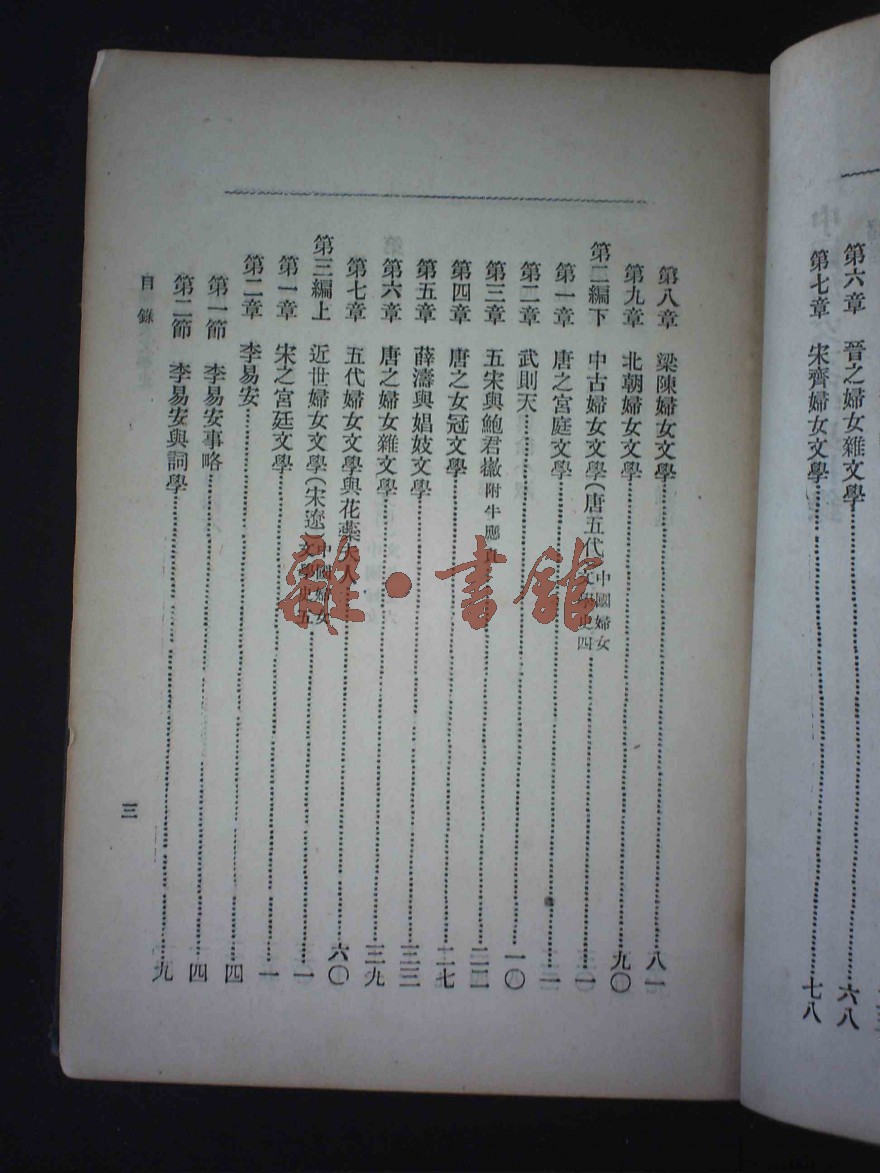 第六章　晉之婦女雜文學……六八
第七章　宋齊婦女文學……七八
第八章　梁陳婦女文學……八一
第九章　北朝婦女文學……九〇
第二編下　中古婦女文學(唐五代 中國婦女文學史四……一
第一章　唐之宮庭文學……一
第二章　武則天……一〇
第三章　五宋與鮑君徽附牛應……二二
第四章　唐之女冠文學……二七
第五章　薛濤與娼妓文學……三三
第六章　唐之婦女雜文學……三九
第七章　五代婦女文學與花蘂夫人……六〇
第三編上　近世婦女文學(宋遼)中國婦女文學史五……一
第一章　宋之宮廷文學……一
第二章　李易安……四
第一節　李易安事略……四
第二節　李易安與詞學……九
目錄
三
雜·書館